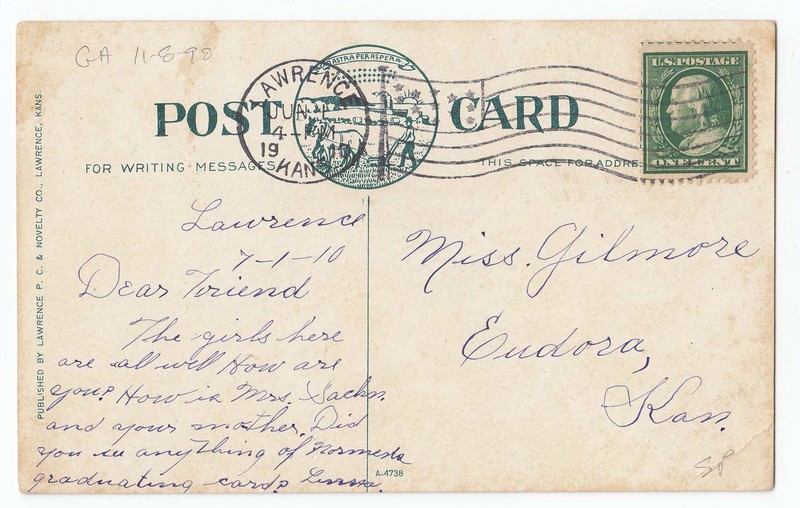 GA 11-8-90
AD ASTRA PER ASPERA
POST CARD
LAWRENCE
JUN
4-PM
1910
KANS
U.S. POSTAGE
ONE CENT
FOR WRITING MESSAGES
THIS SPACE FOR ADDRE
PUBLISHED BY LAWRENCE P. C. & NOVELTY CO., LAWRENCE, KANS.
Lawrence
7-1-10
Dear Friend
The girls here
are all well How are
you? How is Mrs.
and your mother. Did
you see anything of
graduating card?
A-4738
Miss. Gilmore
Eudora,
Kan.
SP